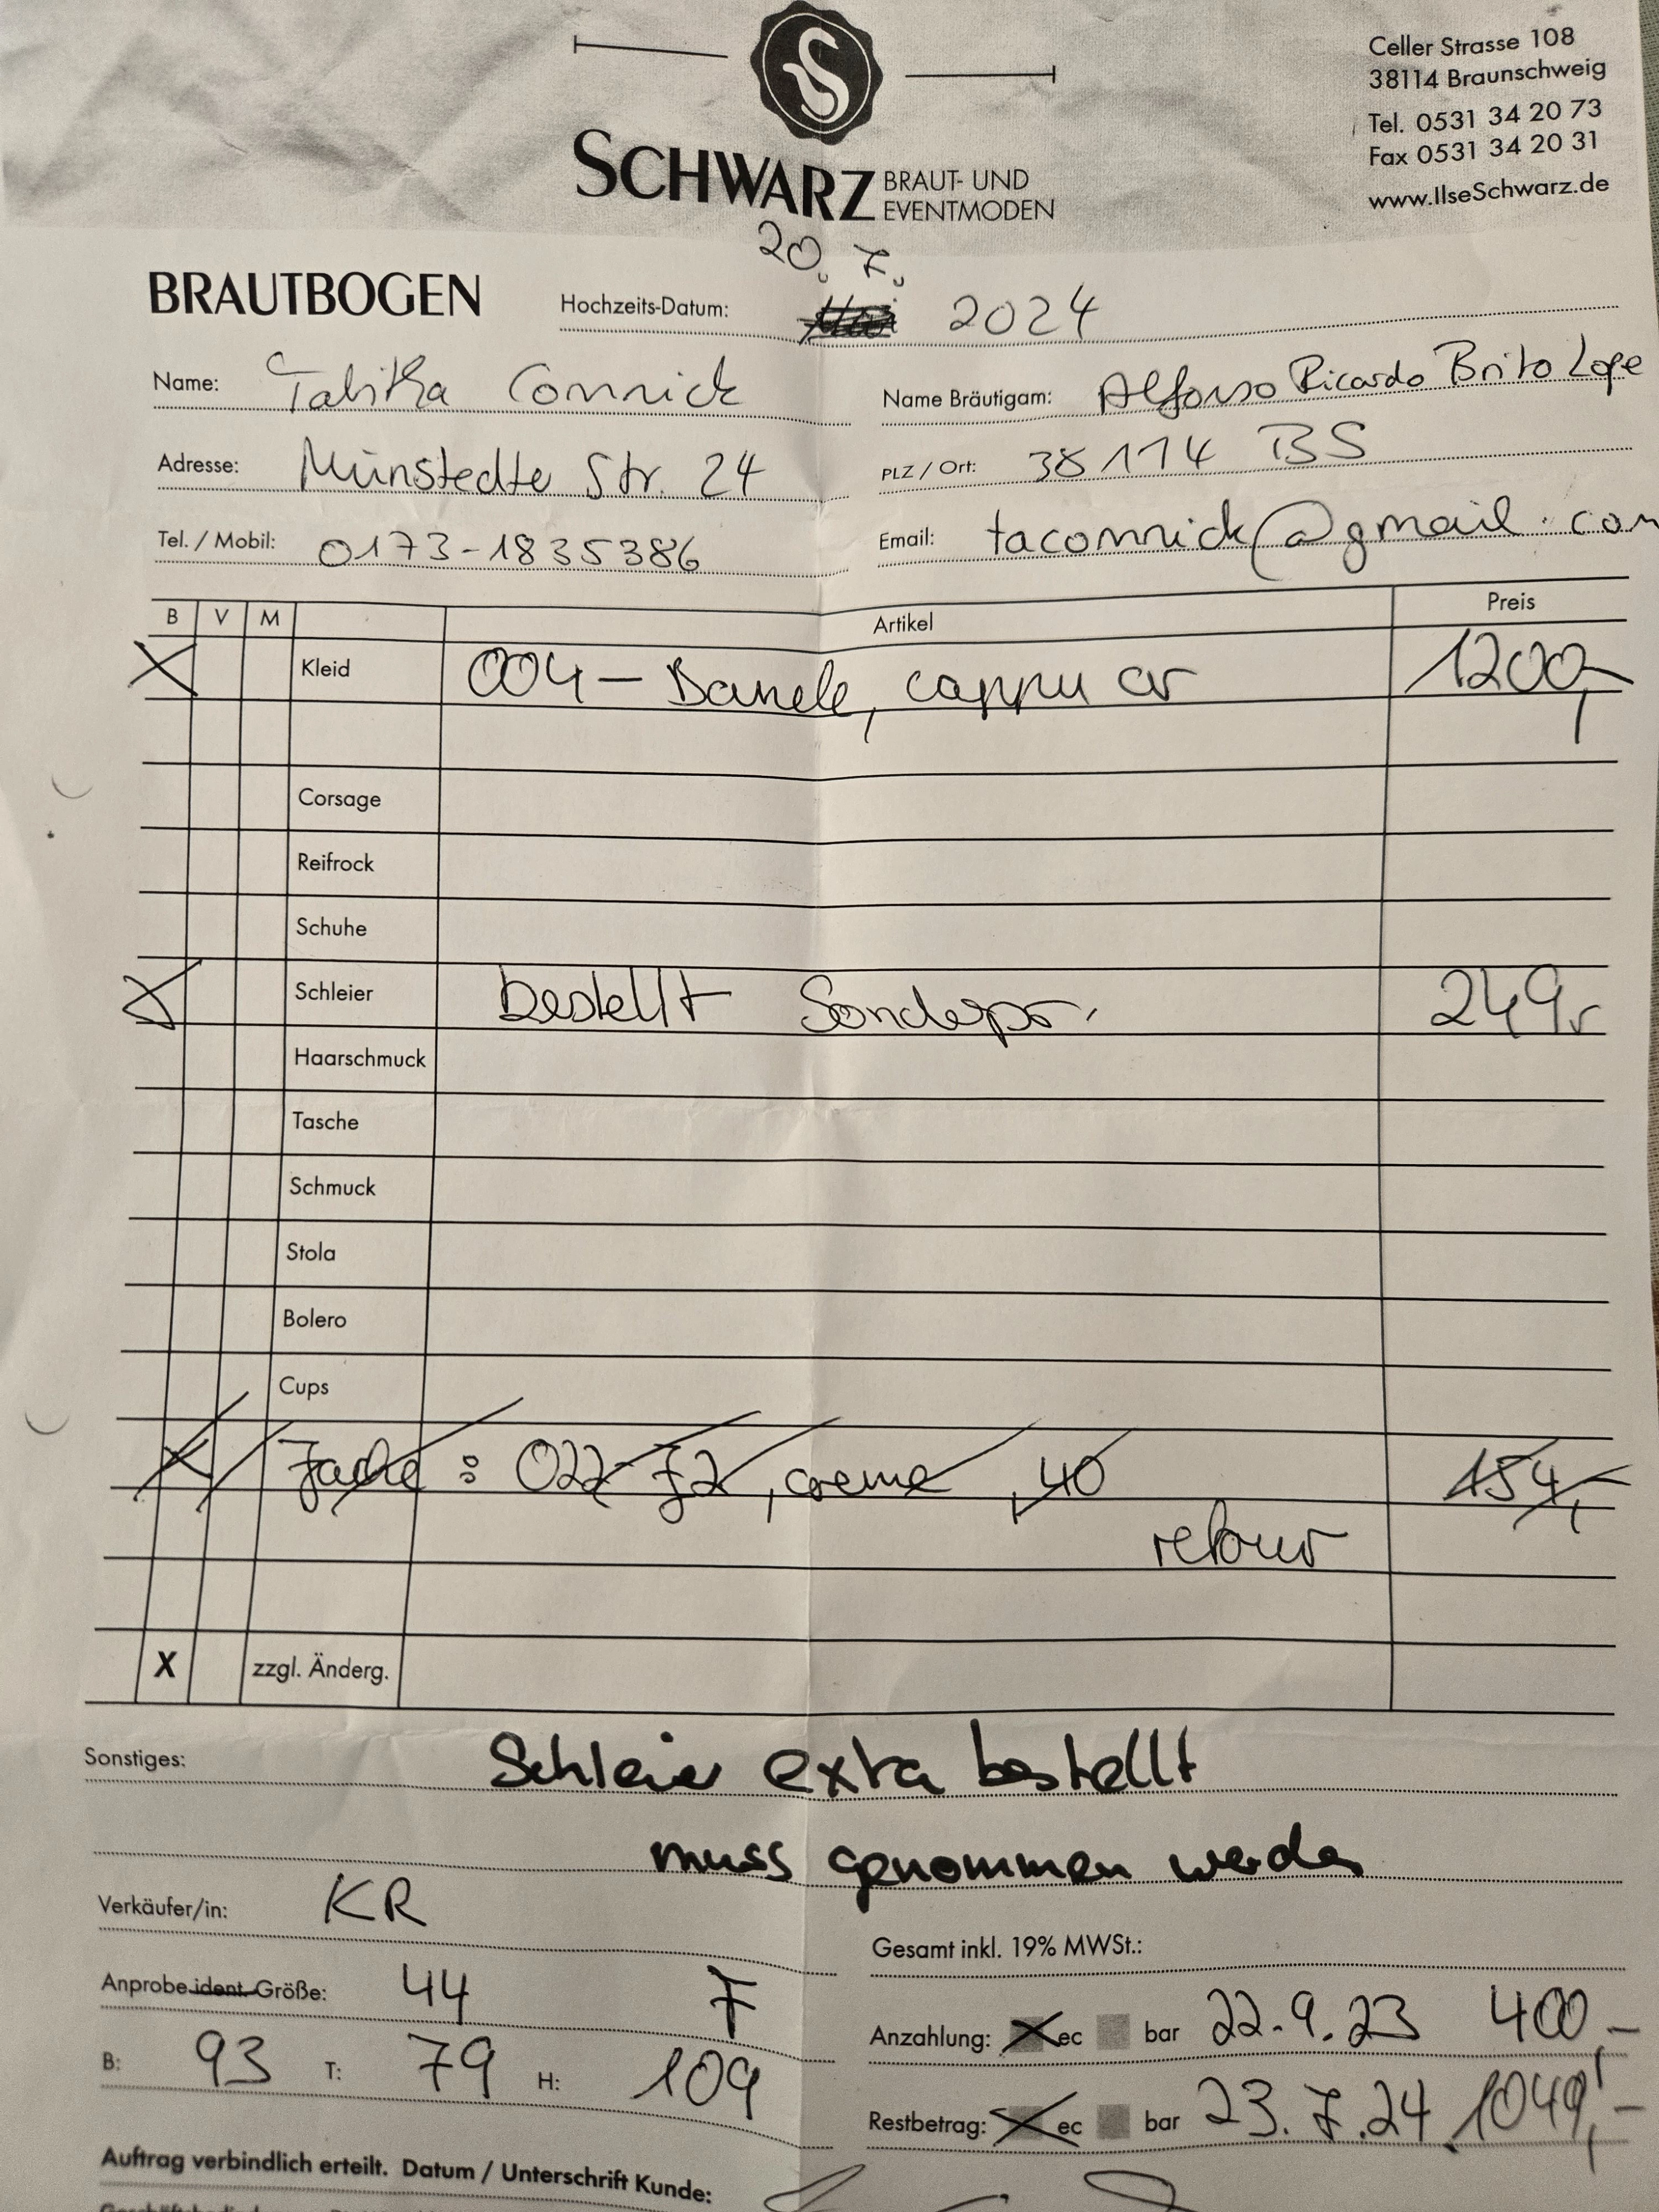 Celler Strasse 108
38114 Braunschweig
Tel. 0531 34 20 73
Fax 0531 34 20 31
www.IlseSchwarz.de
SCHWARZ BRAUT- UND EVENTMODEN
20. 7.
BRAUTBOGEN Hochzeits-Datum: 2024
Name: Tabitha Comnick Name Bräutigam: Alfonso Ricardo Brito Lope
Adresse: Münstedter Str. 24 PLZ / Ort: 38114 BS
Tel. / Mobil: 0173-1835386 Email: tacomnick@gmail.com
B V M Artikel Preis
X Kleid 004 - Danele, cappu cr 1200,-
Corsage
Reifrock
Schuhe
X Schleier bestellt Sonderpr. 249,-
Haarschmuck
Tasche
Schmuck
Stola
Bolero
Cups
X Jacke : 022-72, creme, 40 154,-
retour
X zzgl. Änderg.
Sonstiges: Schleier extra bestellt
muss genommen werden
Verkäufer/in: KR
Gesamt inkl. 19% MWSt.:
Anprobe ident. Größe: 44 F
Anzahlung: X ec bar 22.9.23 400,-
B: 93 T: 79 H: 109
Restbetrag: X ec bar 23.7.24 1049,-
Auftrag verbindlich erteilt. Datum / Unterschrift Kunde: